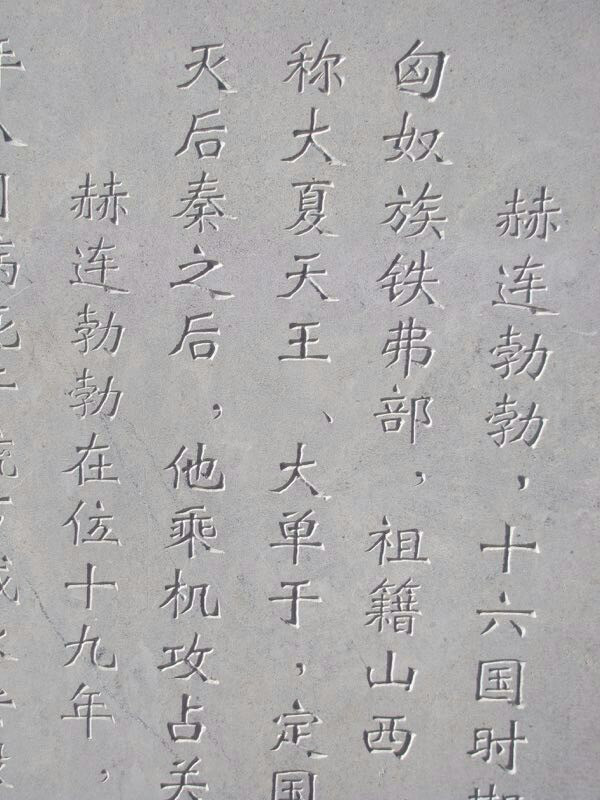 赫连勃勃，十六国时期
匈奴族铁弗部，祖籍山西
称大夏天王、大单于，定国
灭后秦之后，他乘机攻占关
赫连勃勃在位十九年，